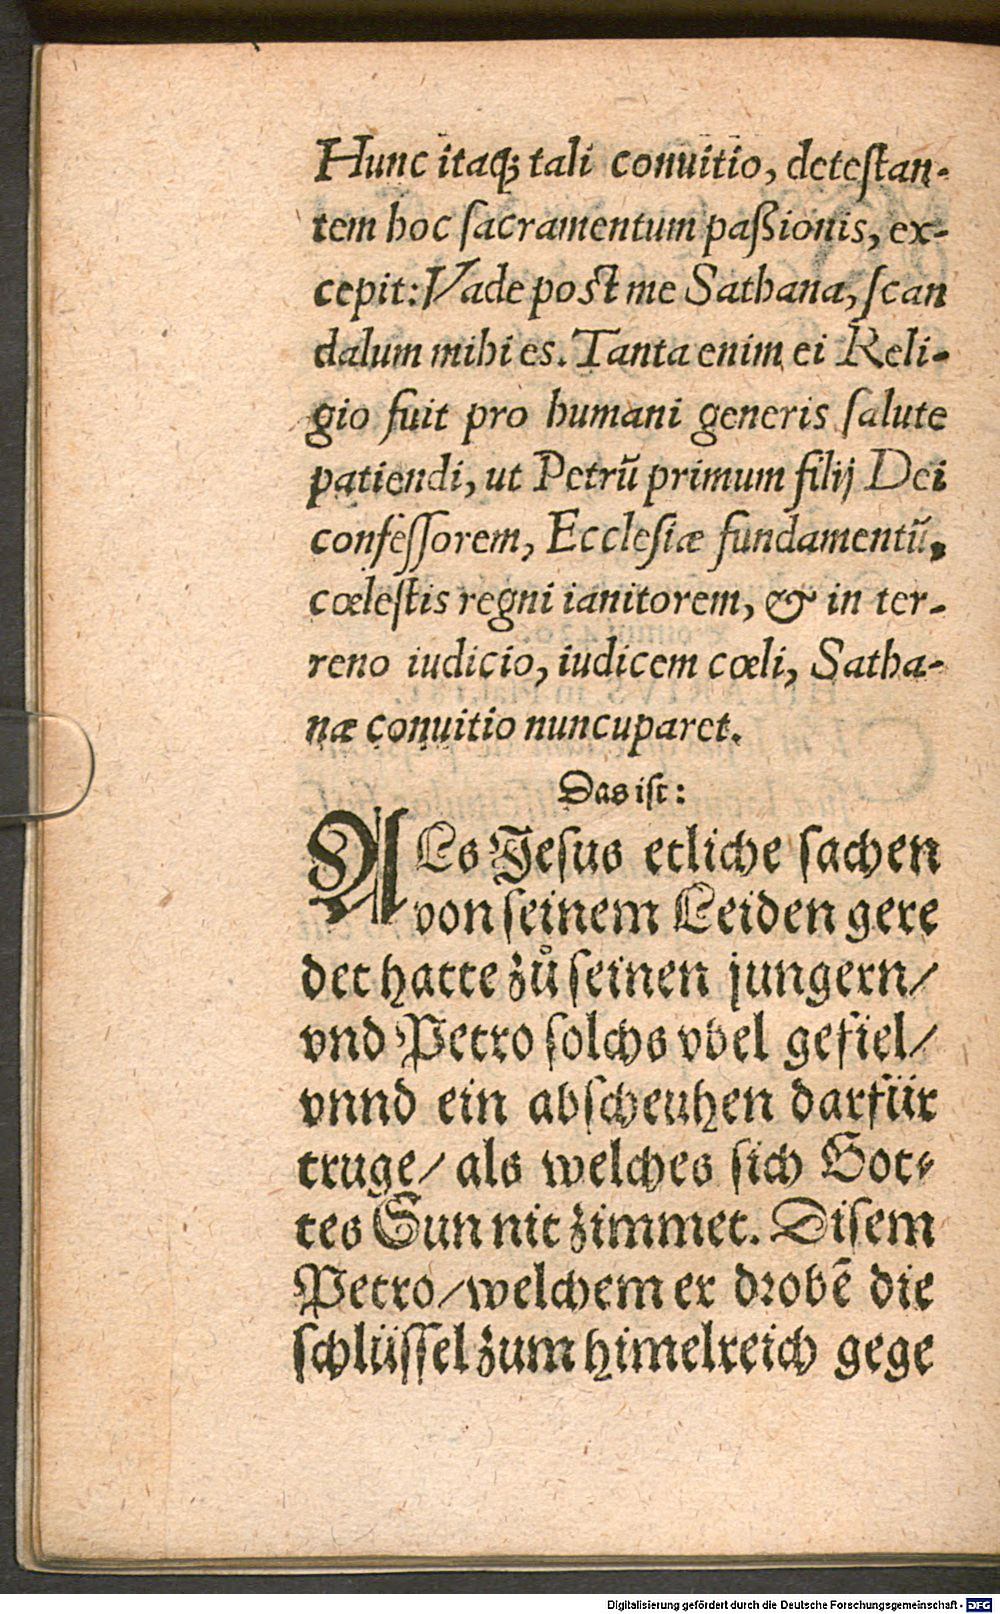 Hunc itaq; tali conuitio, deteſtan-
tem hoc ſacramentum paßionis, ex-
cepit: Vade poſt me Sathana, ſcan
dalum mihi es. Tanta enim ei Reli-
gio fuit pro humani generis ſalute
patiendi, ut Petrū primum filij Dei
confeſſorem, Eccleſiæ fundamentū,
cœleſtis regni ianitorem, & in ter-
reno iudicio, iudicem cœli, Satha-
næ conuitio nuncuparet.
Das iſt:
ALs Jeſus etliche ſachen
von ſeinem Leiden gere
det hatte zů ſeinen jungern/
vnd Petro ſolchs vbel gefiel/
vnnd ein abſcheuhen darfür
truge/ als welches ſich Got-
tes Sun nit zimmet. Diſem
Petro/ welchem er drobē die
ſchlüſſel zum himelreich gege
Digitalisierung gefördert durch die Deutsche Forschungsgemeinschaft - DFG